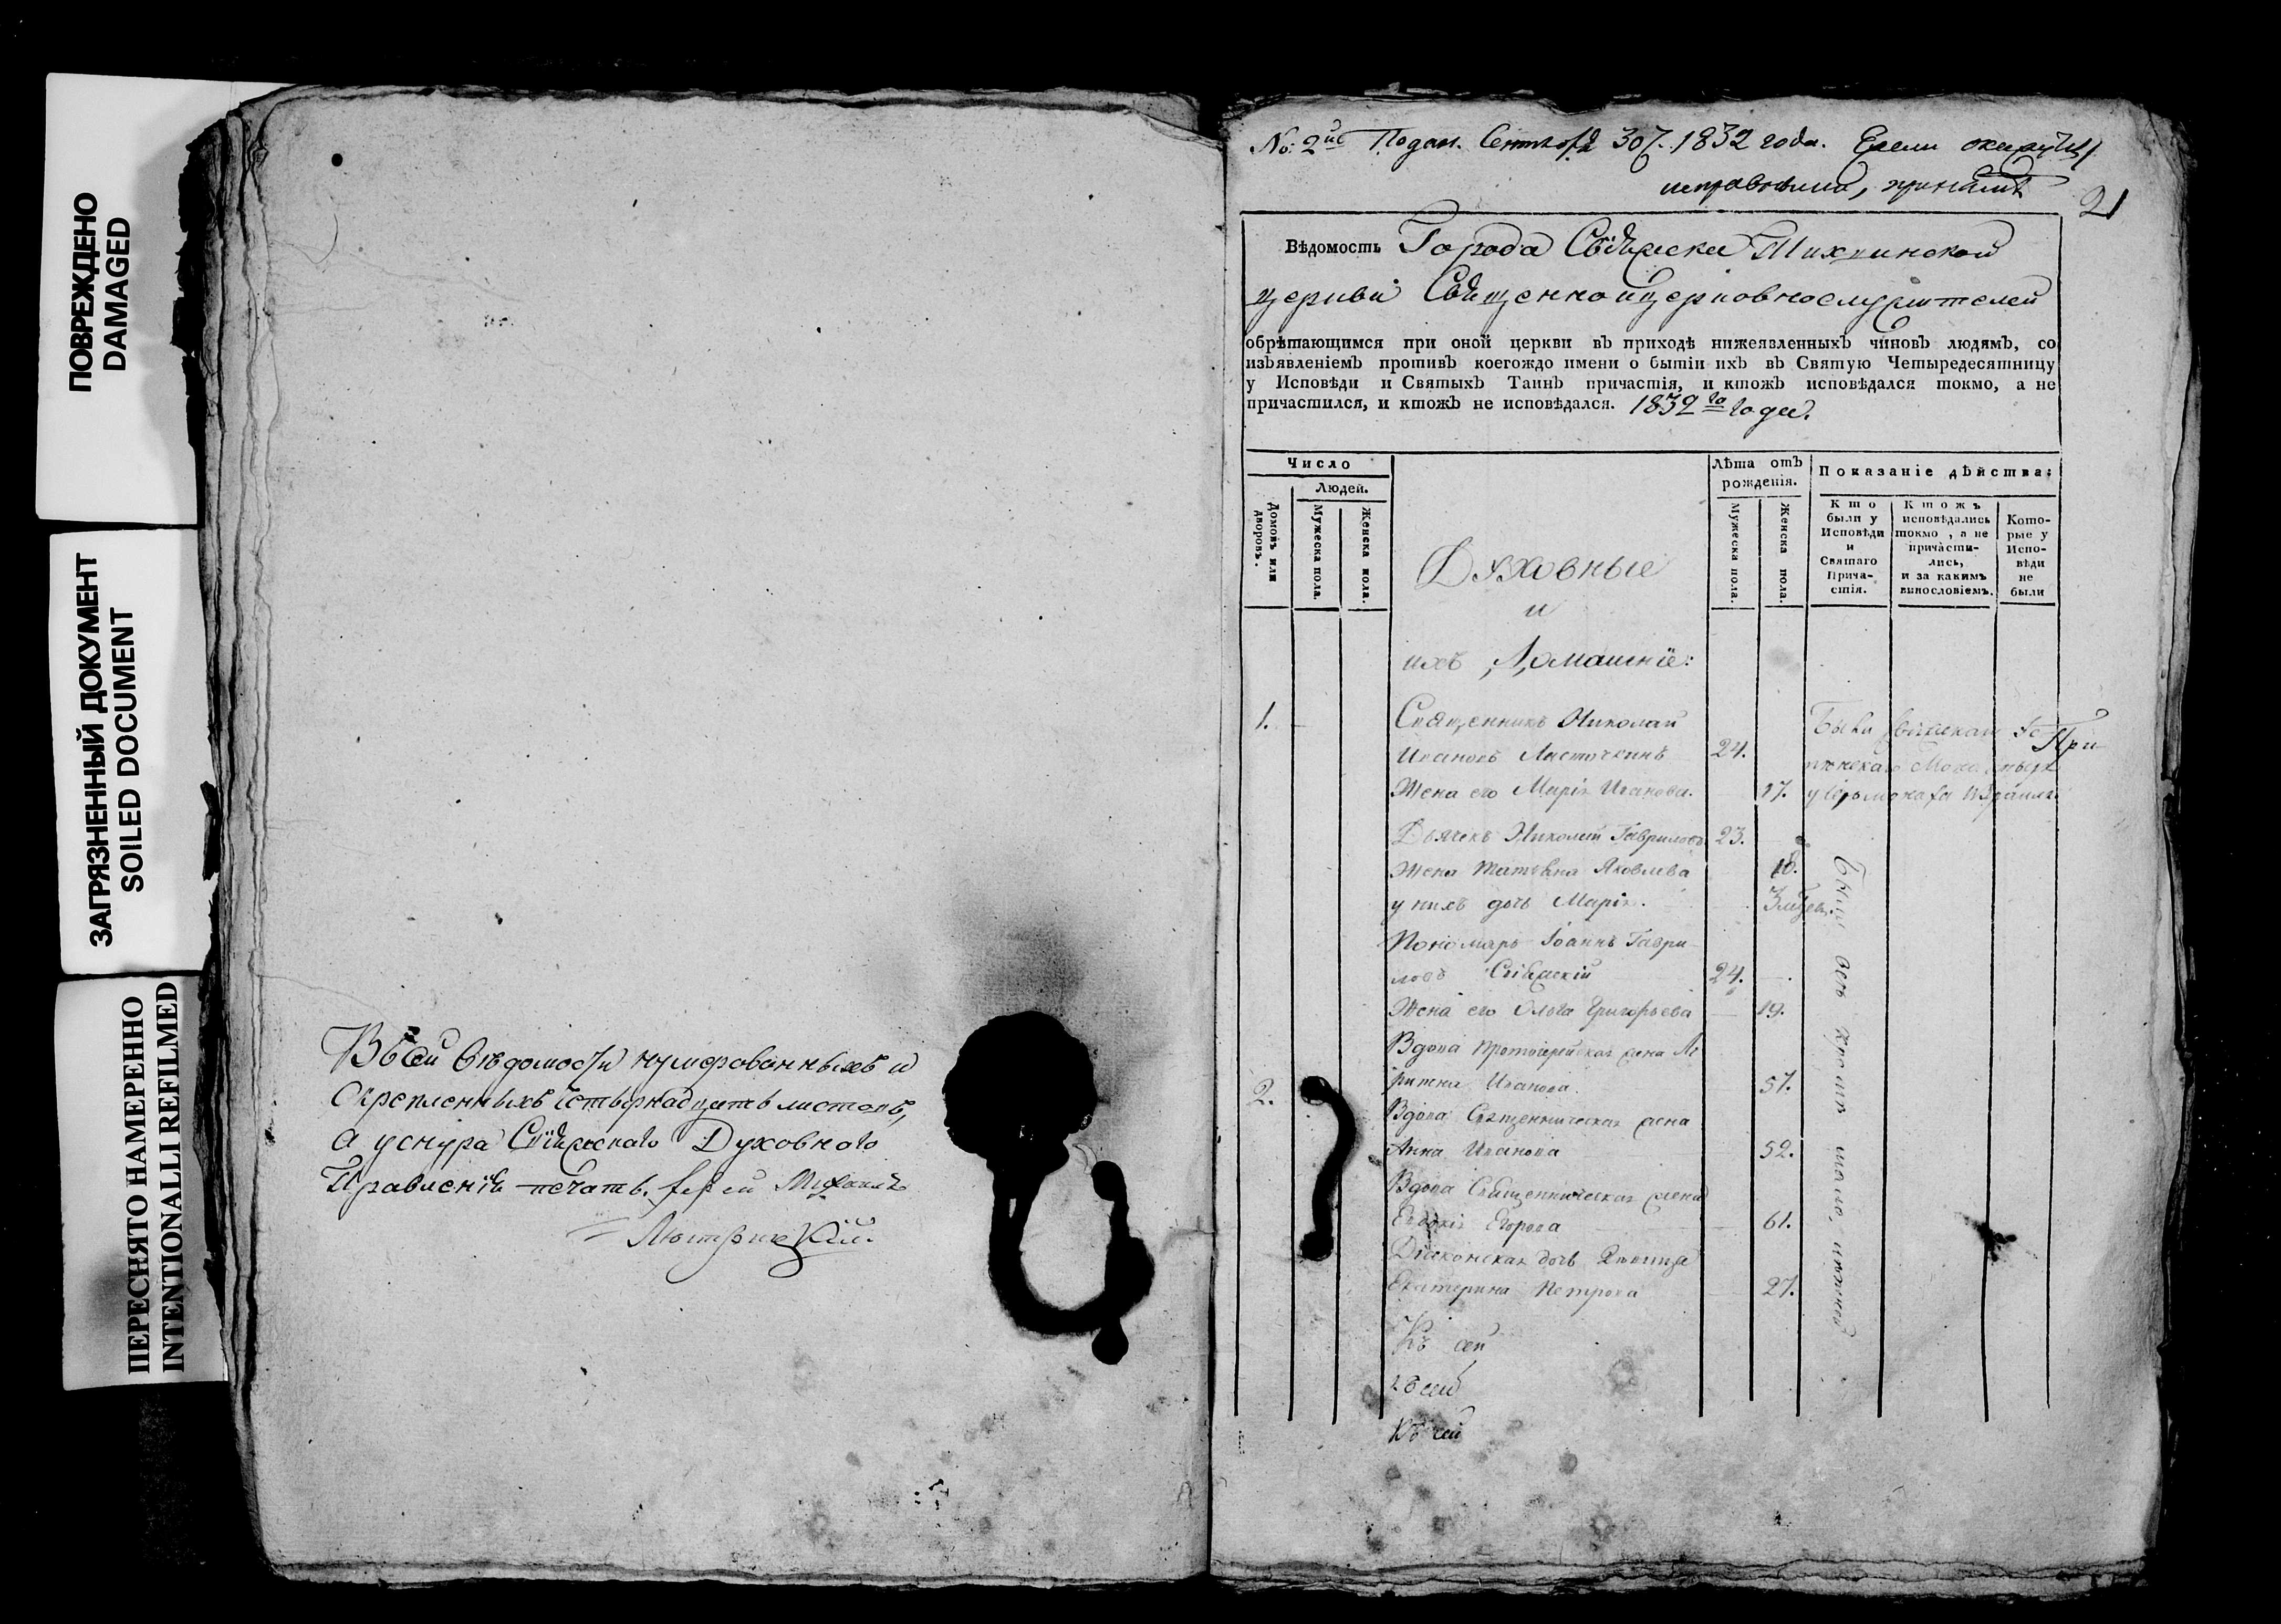 ПОВРЕЖДЕНО
DAMAGED
ЗАГРЯЗНЕННЫЙ ДОКУМЕНТ
SOILED DOCUMENT
ПЕРЕСНЯТО НАМЕРЕННО
INTENTIONALLI REFILMED
Въ сей вѣдомости нумерованныхъ и
скрепленныхъ четырнадцать листовъ,
а у снура Свіяжскаго Духовного
Правленія печать. Іерей Михаилъ
No: 2й Подан. Сентября 30. 1832 года. Ежели окажутся
исправными, принять
21
Вѣдомость Города Свіяжска Тихвинской
церкви Священно и церковнослужителей
обрѣтающимся при оной церкви въ приходѣ нижеявленныхъ чиновъ людямъ, со
изъявленіемъ противъ коегождо имени о бытіи ихъ въ Святую Четыредесятницу
у Исповѣди и Святыхъ Таинъ причастія, и ктожъ исповѣдался токмо, а не
причастился, и ктожъ не исповѣдался. 1832 го года.
Число
Людей.
Домовъ или дворовъ.
Мужеска пола.
Женска пола.
Лѣта отъ рожденія.
Мужеска пола.
Женска пола.
Показаніе дѣйства:
Кто были у Исповѣди и Святаго Причастія.
Ктожъ исповѣдались токмо, а не причастились, и за какимъ винословіемъ.
Которые у Исповѣди не были
Духовные
и
ихъ Домашніе:
1. Священникъ Николай
Ивановъ Ласточкинъ 24.
Жена его Марія Иванова. 17.
Были
у Іеромонаха
Дьячекъ Николай Гавриловъ 23.
Жена Татьяна Яковлева 18.
у нихъ дочь Марія.
Пономарь Іоаннъ Гаври-
ловъ Свіяжскій 24.
Жена его Ольга Григорьева 19.
Вдова Протоіерейская жена
2. Иванова. 57.
Вдова Священническая жена
Анна Иванова 52.
Вдова Священническая жена
Евдокія Егорова 61.
Діаконская дочь Дѣвица
Екатерина Петрова 27.
Были всѣ кромѣ
Къ сей
къ сей
Къ сей